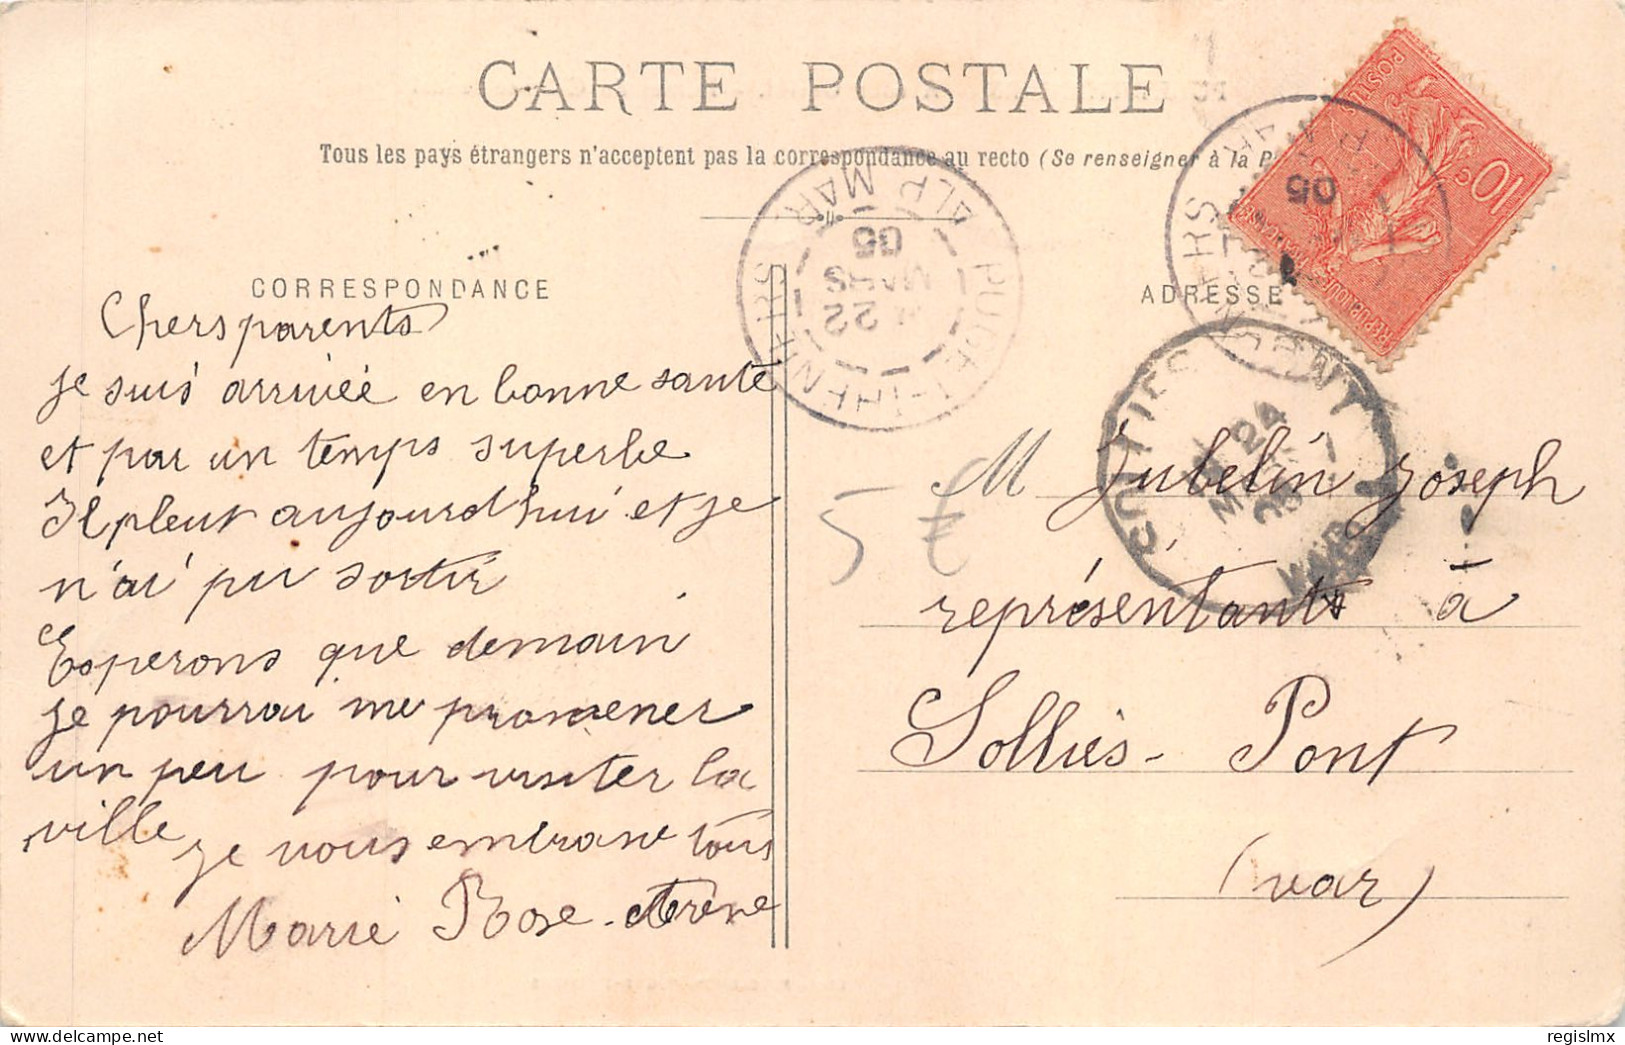 CARTE POSTALE
Tous les pays étrangers n'acceptent pas la correspondance au recto (Se renseigner à la P
CORRESPONDANCE
Chers parents
je suis arrivée en bonne santé
et par un temps superbe
Il pleut aujourd'hui et je
n'ai pu sortir
Esperons que demain
je pourrai me promener
un peu pour visiter la
ville
je vous embrasse tous
Marie Rose
ADRESSE
M Jubelin Joseph
représentant à
Solliès-Pont
(Var)
5 €
PUGET-THENIERS
ALP MAR.
22
MARS
05
THENIERS
05
24
05
VAR
10c
POSTES
REPUBLIQUE FRANÇAISE
delcampe.net
regislmx